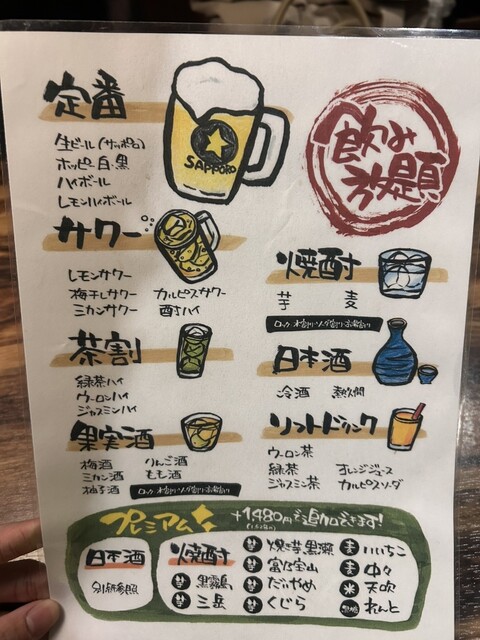 飲み
放題
定番
SAPPORO
生ビール(サッポロ)
ホッピー 白・黒
ハイボール
レモンハイボール
サワー
レモンサワー
梅干しサワー カルピスサワー
ミカンサワー 酎ハイ
茶割
緑茶ハイ
ウーロンハイ
ジャスミンハイ
果実酒
梅酒 りんご酒
ミカン酒 もも酒
柚子酒 ロック・水割り・ソーダ割り・お湯割り
焼酎
芋 麦
ロック・水割り・ソーダ割り・お湯割り
日本酒
冷酒 熱燗
ソフトドリンク
ウーロン茶
緑茶 オレンジジュース
ジャスミン茶 カルピスソーダ
プレミアム +1,480円で追加できます!
日本酒
別紙参照
焼酎
芋 黒霧島
芋 三岳
芋 焼き芋黒瀬
芋 富乃宝山
芋 だいやめ
芋 くじら
麦 いいちこ
麦 中々
米 天吹
黒糖 れんと